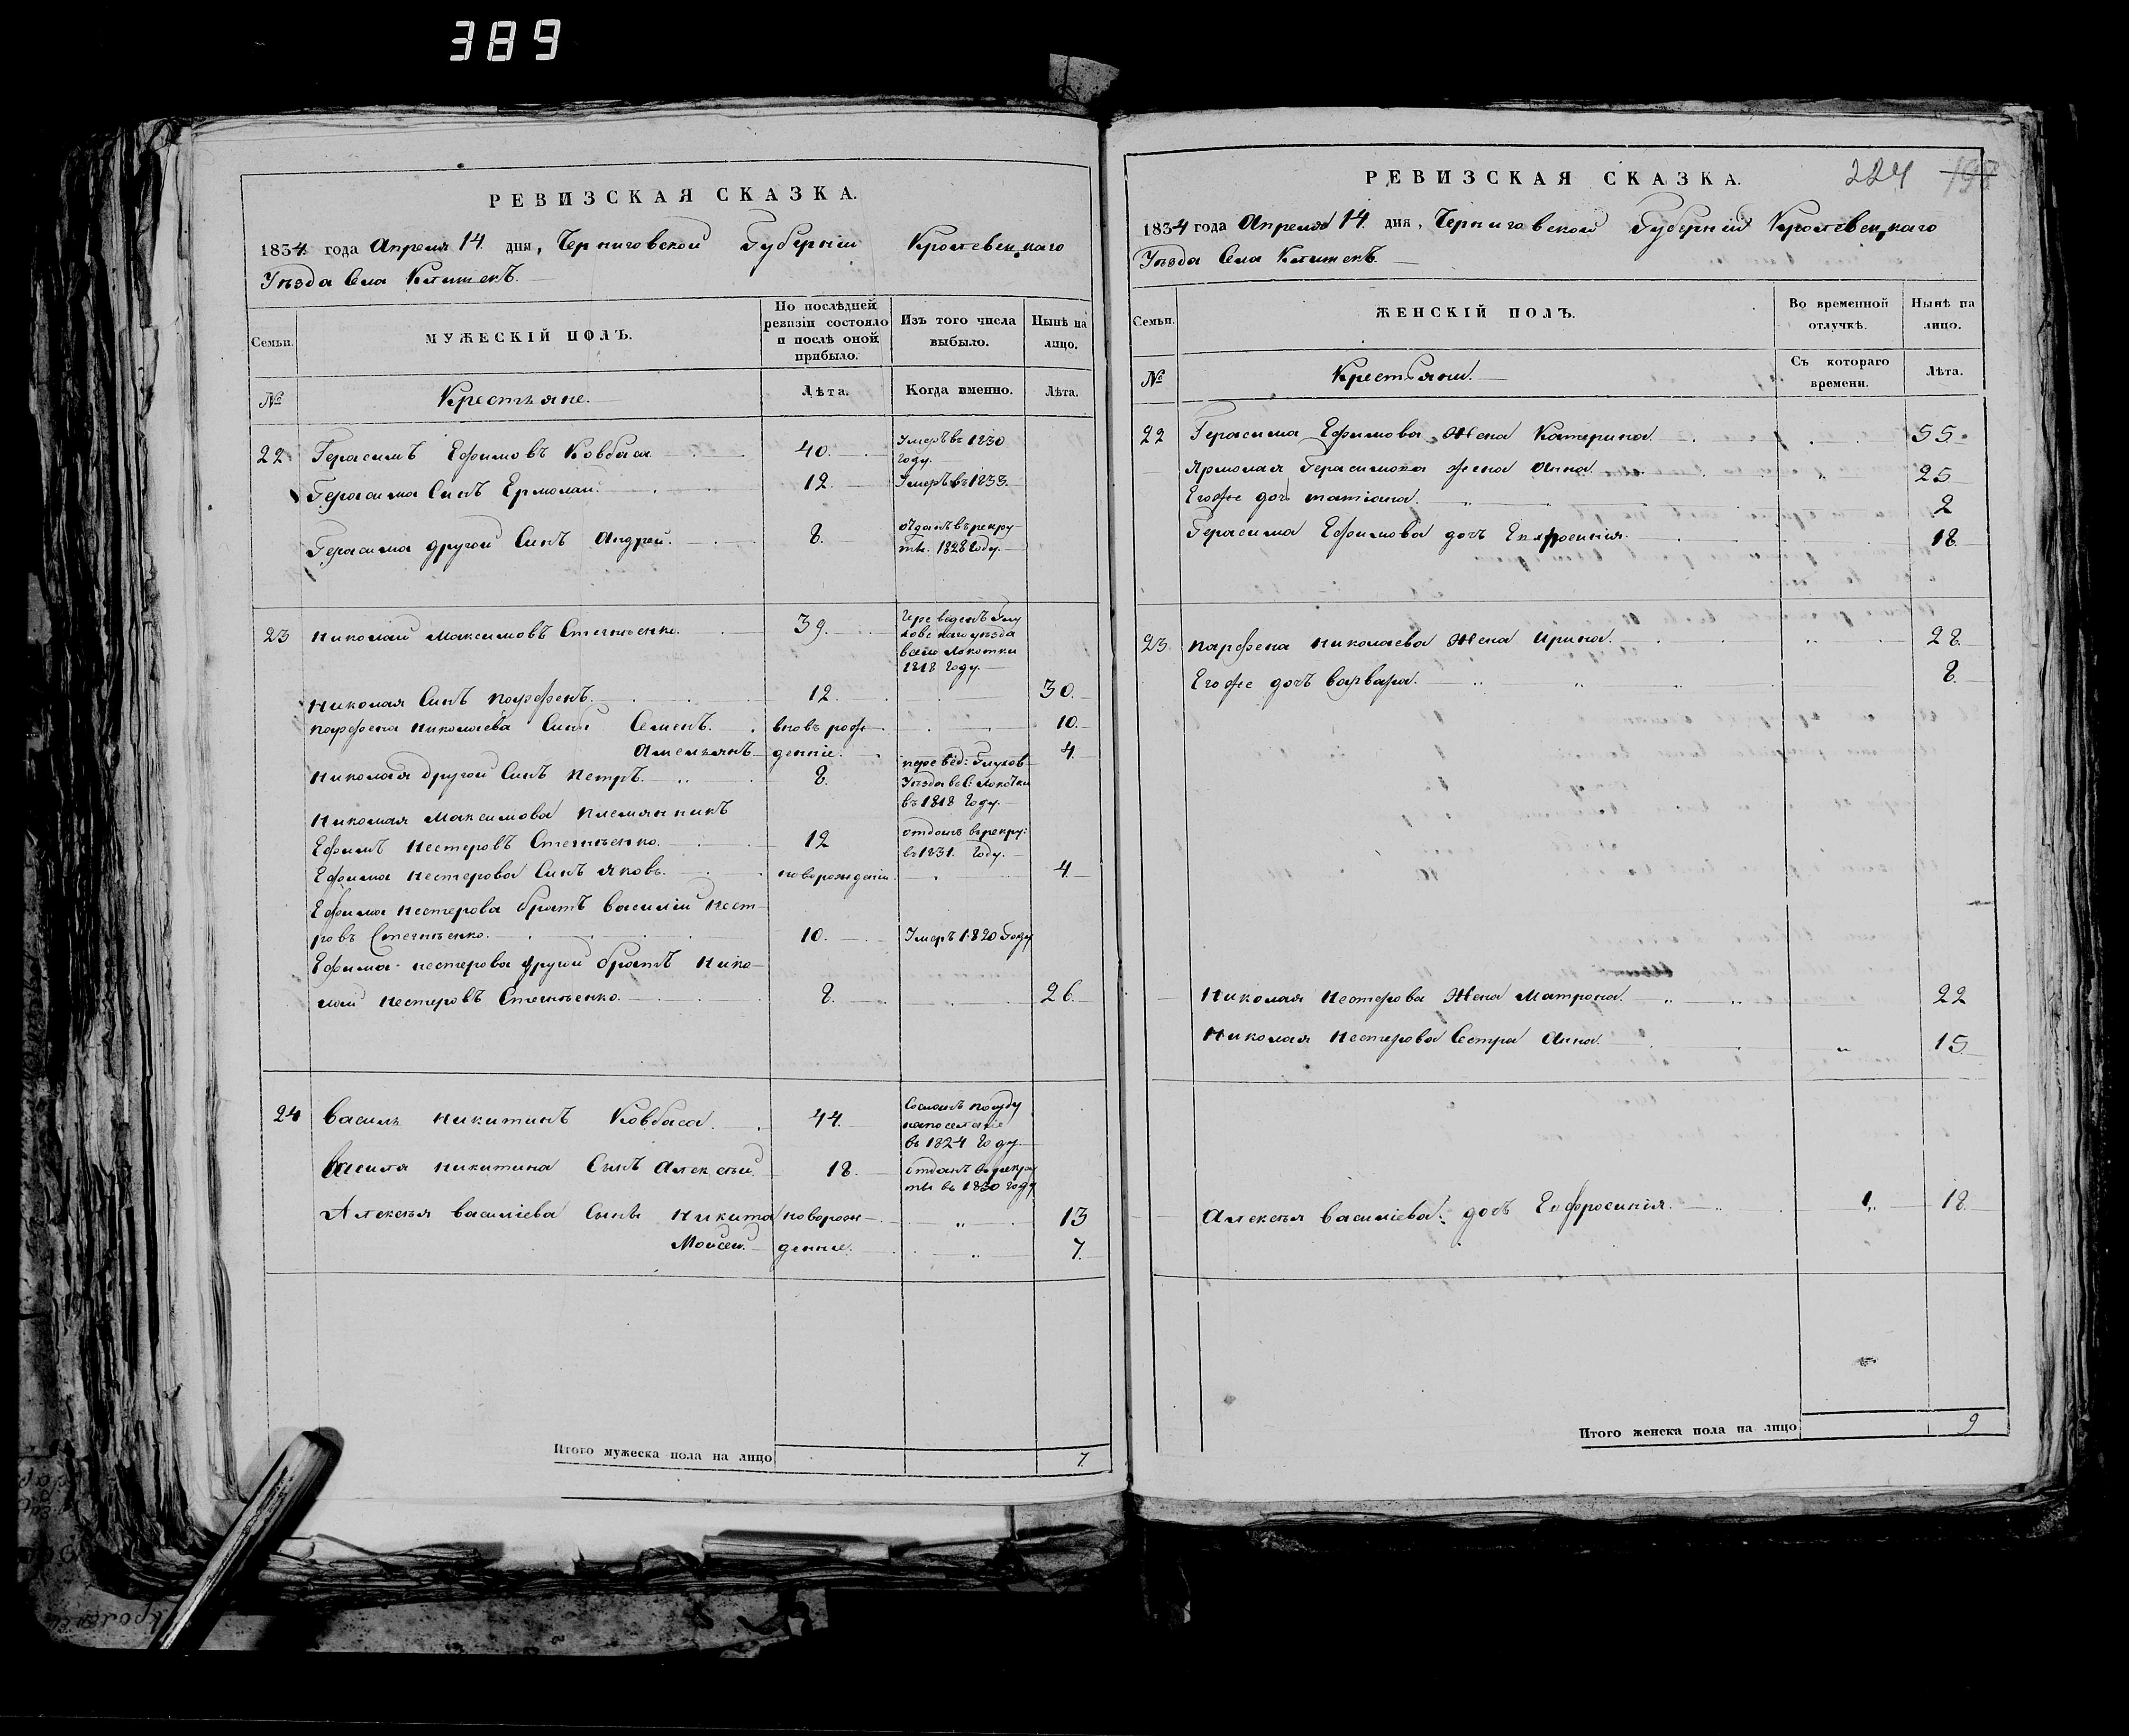 389
РЕВИЗСКАЯ СКАЗКА.
1834 года Апреля 14 дня, Черниговской Губерніи Кролевецкаго
Уѣзда Села Клишекъ.
Семьи.
МУЖЕСКІЙ ПОЛЪ.
По послѣдней ревизіи состояло и послѣ оной прибыло.
Изъ того числа выбыло.
Нынѣ на лицо.
№
Крестьяне.
Лѣта.
Когда именно.
Лѣта.
22 Герасимъ Ефимовъ Ковбаса 40. Умеръ въ 1830 году.
Герасима Синъ Ермолай. 12. Умеръ въ 1833.
Герасима другой Синъ Андрей. 8. отданъ в рекру
ты. 1828 году.
23 Николай Максимовъ 39. Переведенъ Глу
ховскаго уѣзда
въ село Локотки
1818 году.
Николая Синъ Парфенъ. 12. 30.
Парфена Николаева Сины Семенъ. вновь рож 10.
Амельянъ денніе. 4.
Николая другой Синъ Петръ. 8. перевед: Глухов
Уѣзда в с: Локотки
въ 1818 году.
Николая Максимова племянникъ
Ефимъ Нестеровъ 12 отданъ в рекру:
въ 1831. году.
Ефима Нестерова Синъ Яковъ. новорожденій 4.
Ефима Нестерова братъ Василій Несте
ровъ 10. Умеръ 1820 году
Ефима Нестерова другой братъ Нико
лай Нестеровъ 8. 26.
24 Василь Никитинъ Ковбаса. 44. Сосланъ по суду
на поселеніе
въ 1824 году.
Василя Никитина Сынъ Алексѣй 18. отданъ в рекру
ты въ 1830 году
Алексѣя Василіева Сыны Никита новорож 13
Моисей. денніе. 7.
Итого мужеска пола на лицо 7.
224 197
РЕВИЗСКАЯ СКАЗКА.
1834 года Апреля 14 дня, Черниговской Губерніи Кролевецкаго
Уѣзда Села Клишекъ.
Семьи.
ЖЕНСКІЙ ПОЛЪ.
Во временной отлучкѣ.
Нынѣ на лицо.
№
Крестьяни.
Съ котораго времени.
Лѣта.
22 Герасима Ефимова Жена Катерина. 55.
Ярмолая Герасимова жена Анна 25
Его же дочь татіана. 2
Герасима Ефимова дочъ Евфросинія. 18.
23 Парфена Николаева Жена Ирина. 28.
Его же дочъ Варвара. 8.
Николая Нестерова Жена Матрона. 22
Николая Нестерова Сестра Анна. 15.
Алексѣя Василіева дочъ Евфросинія. 18.
Итого женска пола на лицо 9